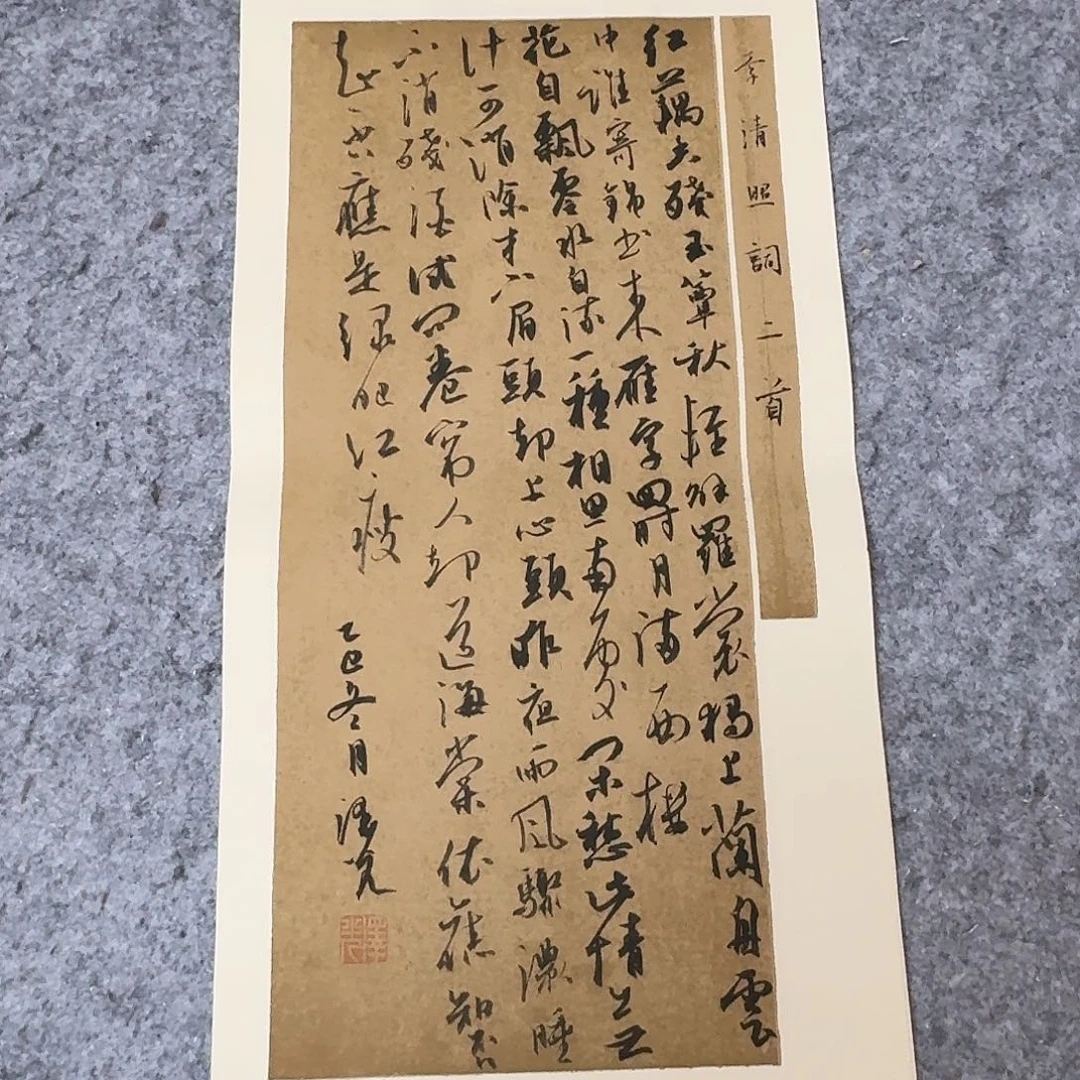 李清照詞二首
红藕香残玉簟秋輕解羅裳獨上蘭舟雲
中誰寄錦书来雁字回时月满西楼
花自飄零水自流一種相思两處闲愁此情无
计可消除才下眉頭却上心頭昨夜雨风驟濃睡
不消残酒试问卷帘人却道海棠依舊知否
知否應是绿肥红瘦 乙巳冬月